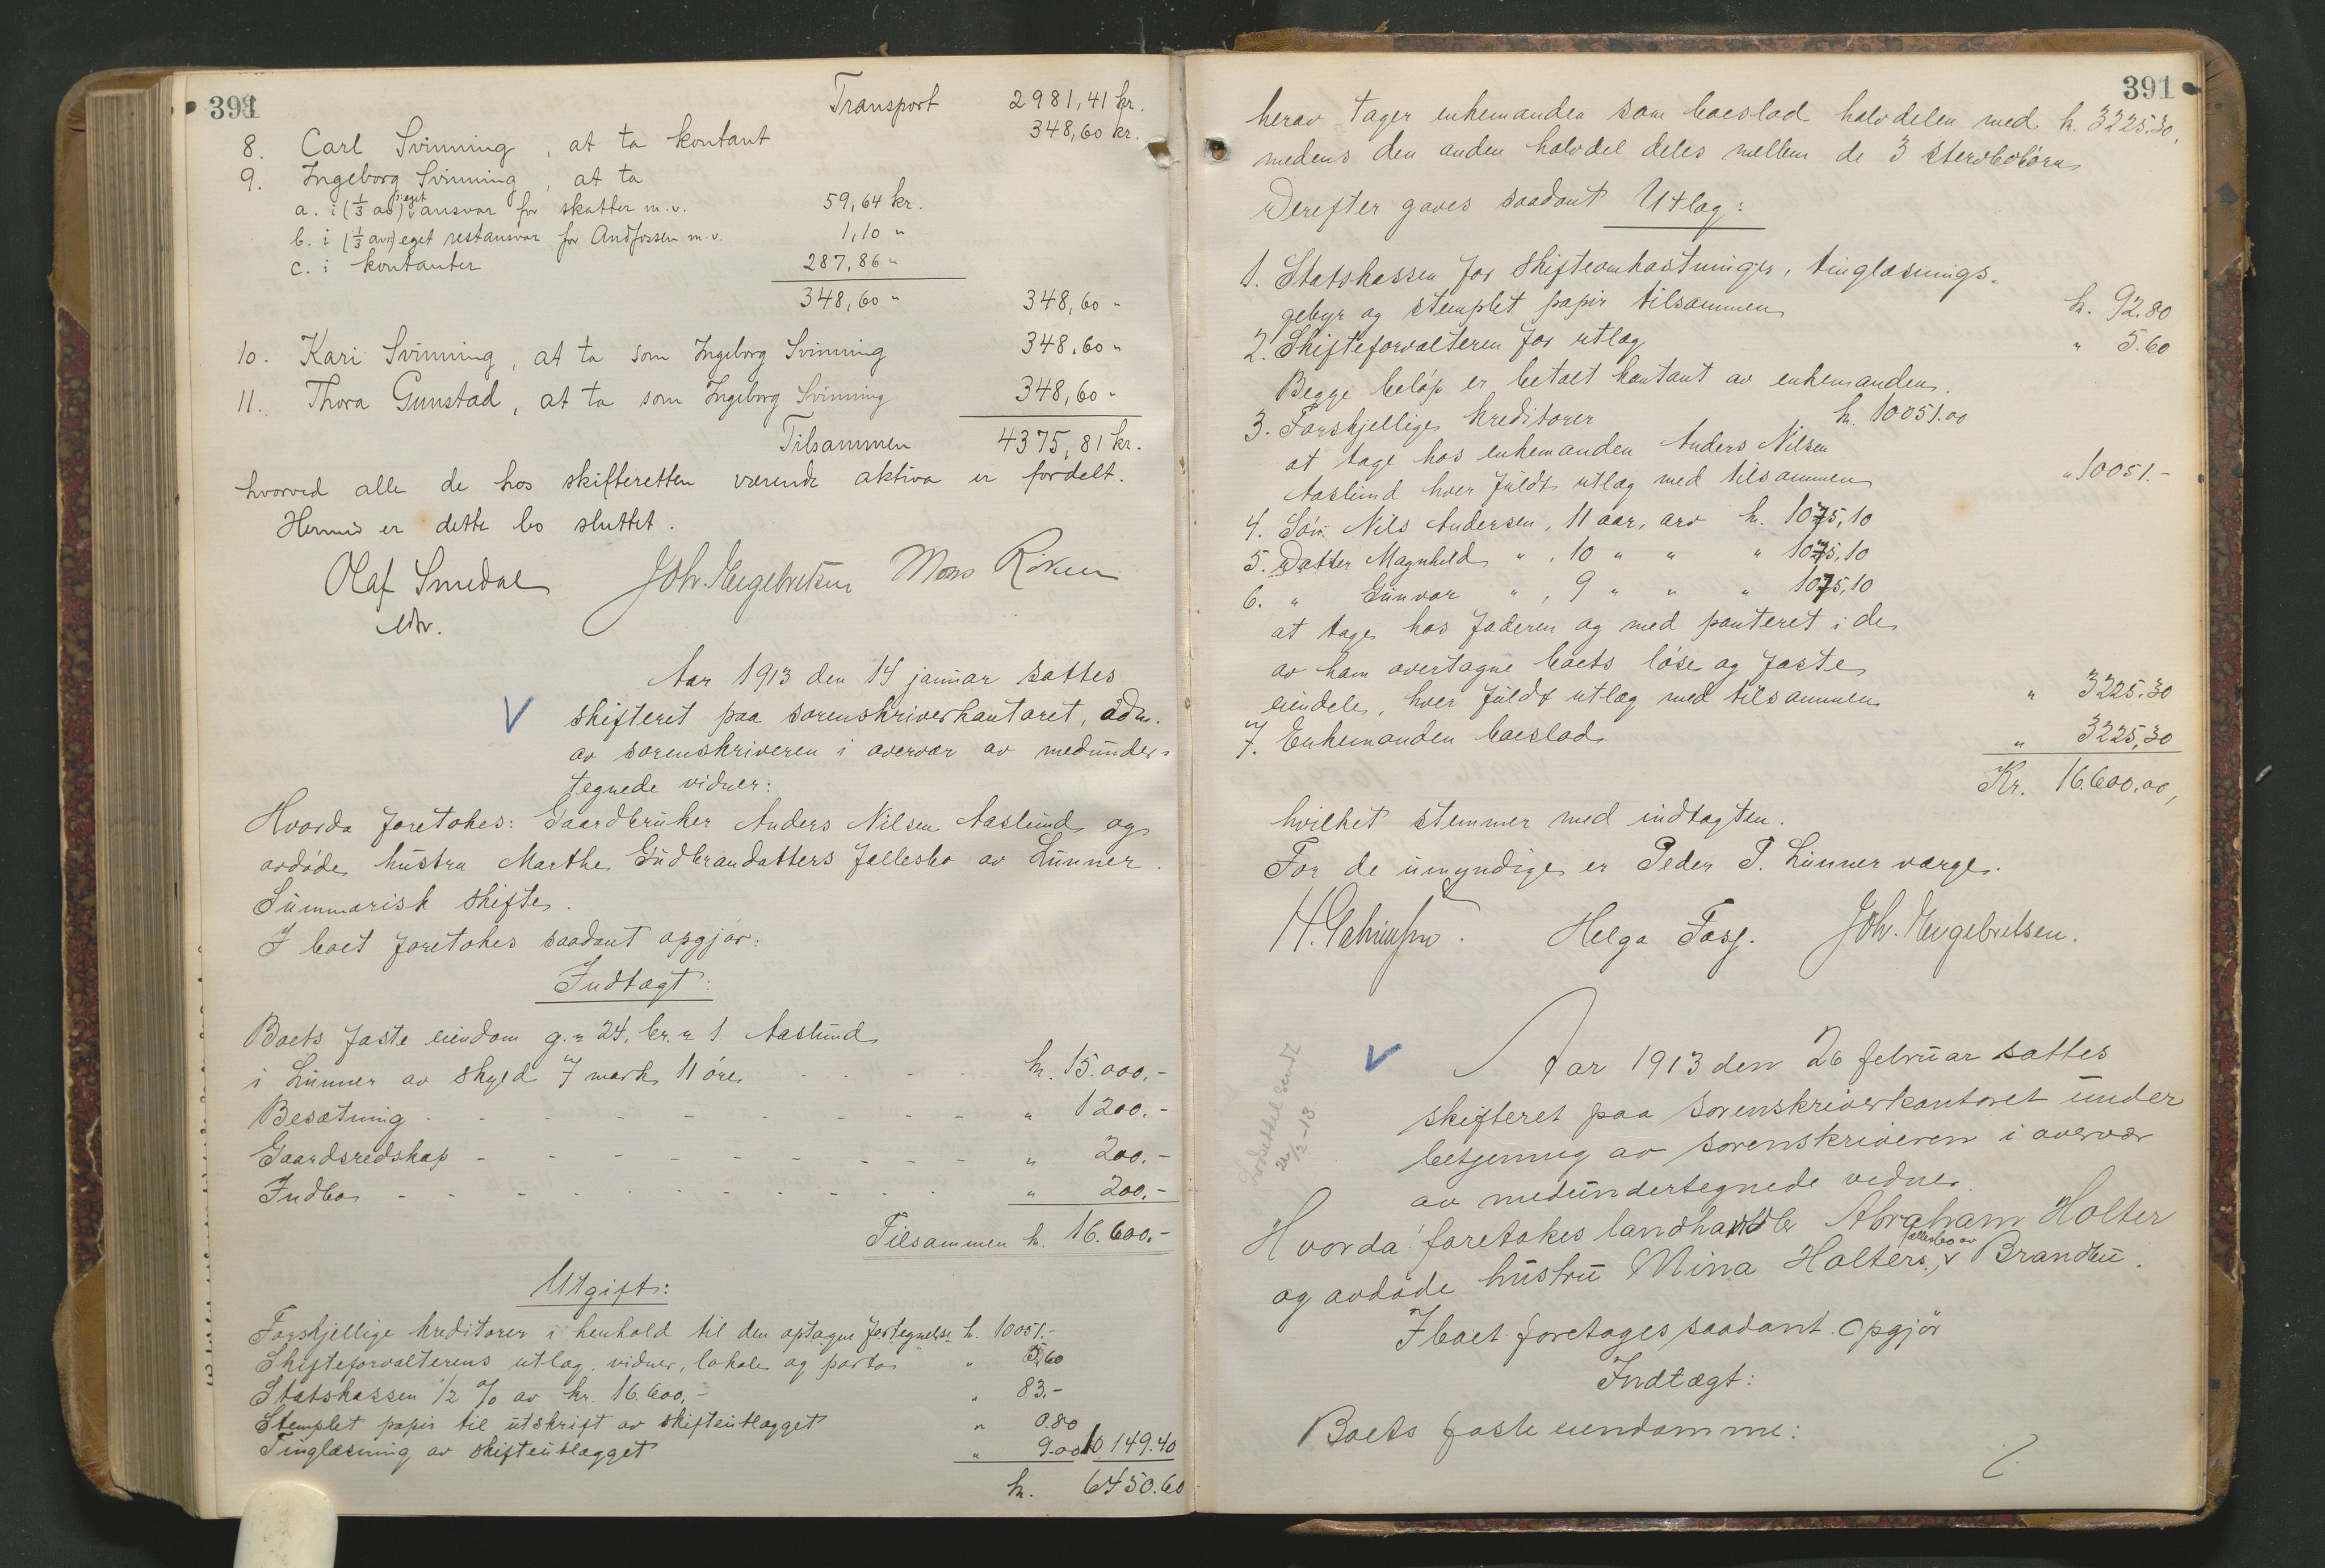 391
Transport 2981,41 kr.
8. Carl Svinning, at ta kontant 348,60 kr.
9. Ingeborg Svinning, at ta
a. i (1/3 av) eget ansvar for skatter m.v. 59,64 kr.
b. i (1/3 av) eget restansvar for Andfossen m.v. 1,10 "
c. i kontanter 287,86 "
348,60 " 348,60 "
10. Kari Svinning, at ta som Ingeborg Svinning 348,60 "
11. Thora Gunstad, at ta som Ingeborg Svinning 348,60 "
Tilsammen 4375,81 kr.
hvorved alle de hos skifteretten værende aktiva er fordelt.
Hermed er dette bo sluttet.
Olaf Smedal Joh. Engebretsen Mons Røken
edv.
Aar 1913 den 14 januar sattes
V skifteret paa sorenskriverkontoret, adm.
av sorenskriveren i overvær av medunder-
tegnede vidner:
Hvorda foretokes: Gaardbruker Anders Nilsen Aaslund og
avdøde hustru Marthe Gudbrandatters fællesbo av Lunner.
Summarisk skifte.
I boet foretokes saadant opgjør:
Indtægt:
Boets faste eiendom g.n 24, br.n 1 Aaslund
i Lunner av skyld 7 mark 11 øre kr. 15.000.-
Besætning " 1200.-
Gaardsredskap " 200.-
Indbo " 200.-
Tilsammen kr. 16.600.-
Utgift:
Forskjellige kreditorer i henhold til den optagne fortegnelse kr. 10051.-
Skifteforvalterens utlæg, vidner, lokale og porto " 5,60
Statskassen 1/2 % av kr. 16.600,- " 83.-
Stemplet papir til utskrift av skifteutlægget " 0.80
Tinglæsning av skifteutlægget " 9.00 10.149.40
kr. 6450.60
391
herav tager enkemanden som boeslod halvdelen med kr. 3225,30,
medens den anden halvdel deles mellem de 3 stervbobørn
Derefter gaves saadant Utlæg:
1. Statskassen for skifteomkostninger, tinglæsnings-
gebyr og stemplet papir tilsammen kr. 92.80
2. Skifteforvalteren for utlæg " 5.60
Begge beløp er betalt kontant av enkemanden.
3. Forskjellige kreditorer kr. 10051.00
at tage hos enkemanden Anders Nilsen
Aaslund hver fuldt utlæg med tilsammen " 10051.-
4. Søn Nils Andersen, 11 aar, arv kr. 1075,10
5. Datter Magnhild " , 10 " " " 1075,10
6. " Gunvor " , 9 " " " 1075,10
at tage hos faderen og med panteret i de
av ham overtagne boets løse og faste
eiendele, hver fuldt utlæg med tilsammen " 3225.30
7. Enkemanden boeslod " 3225,30
Kr. 16.600.00,
hvilket stemmer med indtægten.
For de umyndige er Peder P. Lunner værge.
Helga Fasg. Joh. Engebretsen.
V Aar 1913 den 26 februar sattes
skifteret paa sorenskriverkontoret under
betjening av sorenskriveren i overvær
av medundertegnede vidner.
26/2-13
Hvorda foretokes landhandler Abraham Holter
og avdøde hustru Mina Holters, fællesbo av Brandbu.
I boet foretages saadant opgjør
Indtægt:
Boets faste eiendomme: